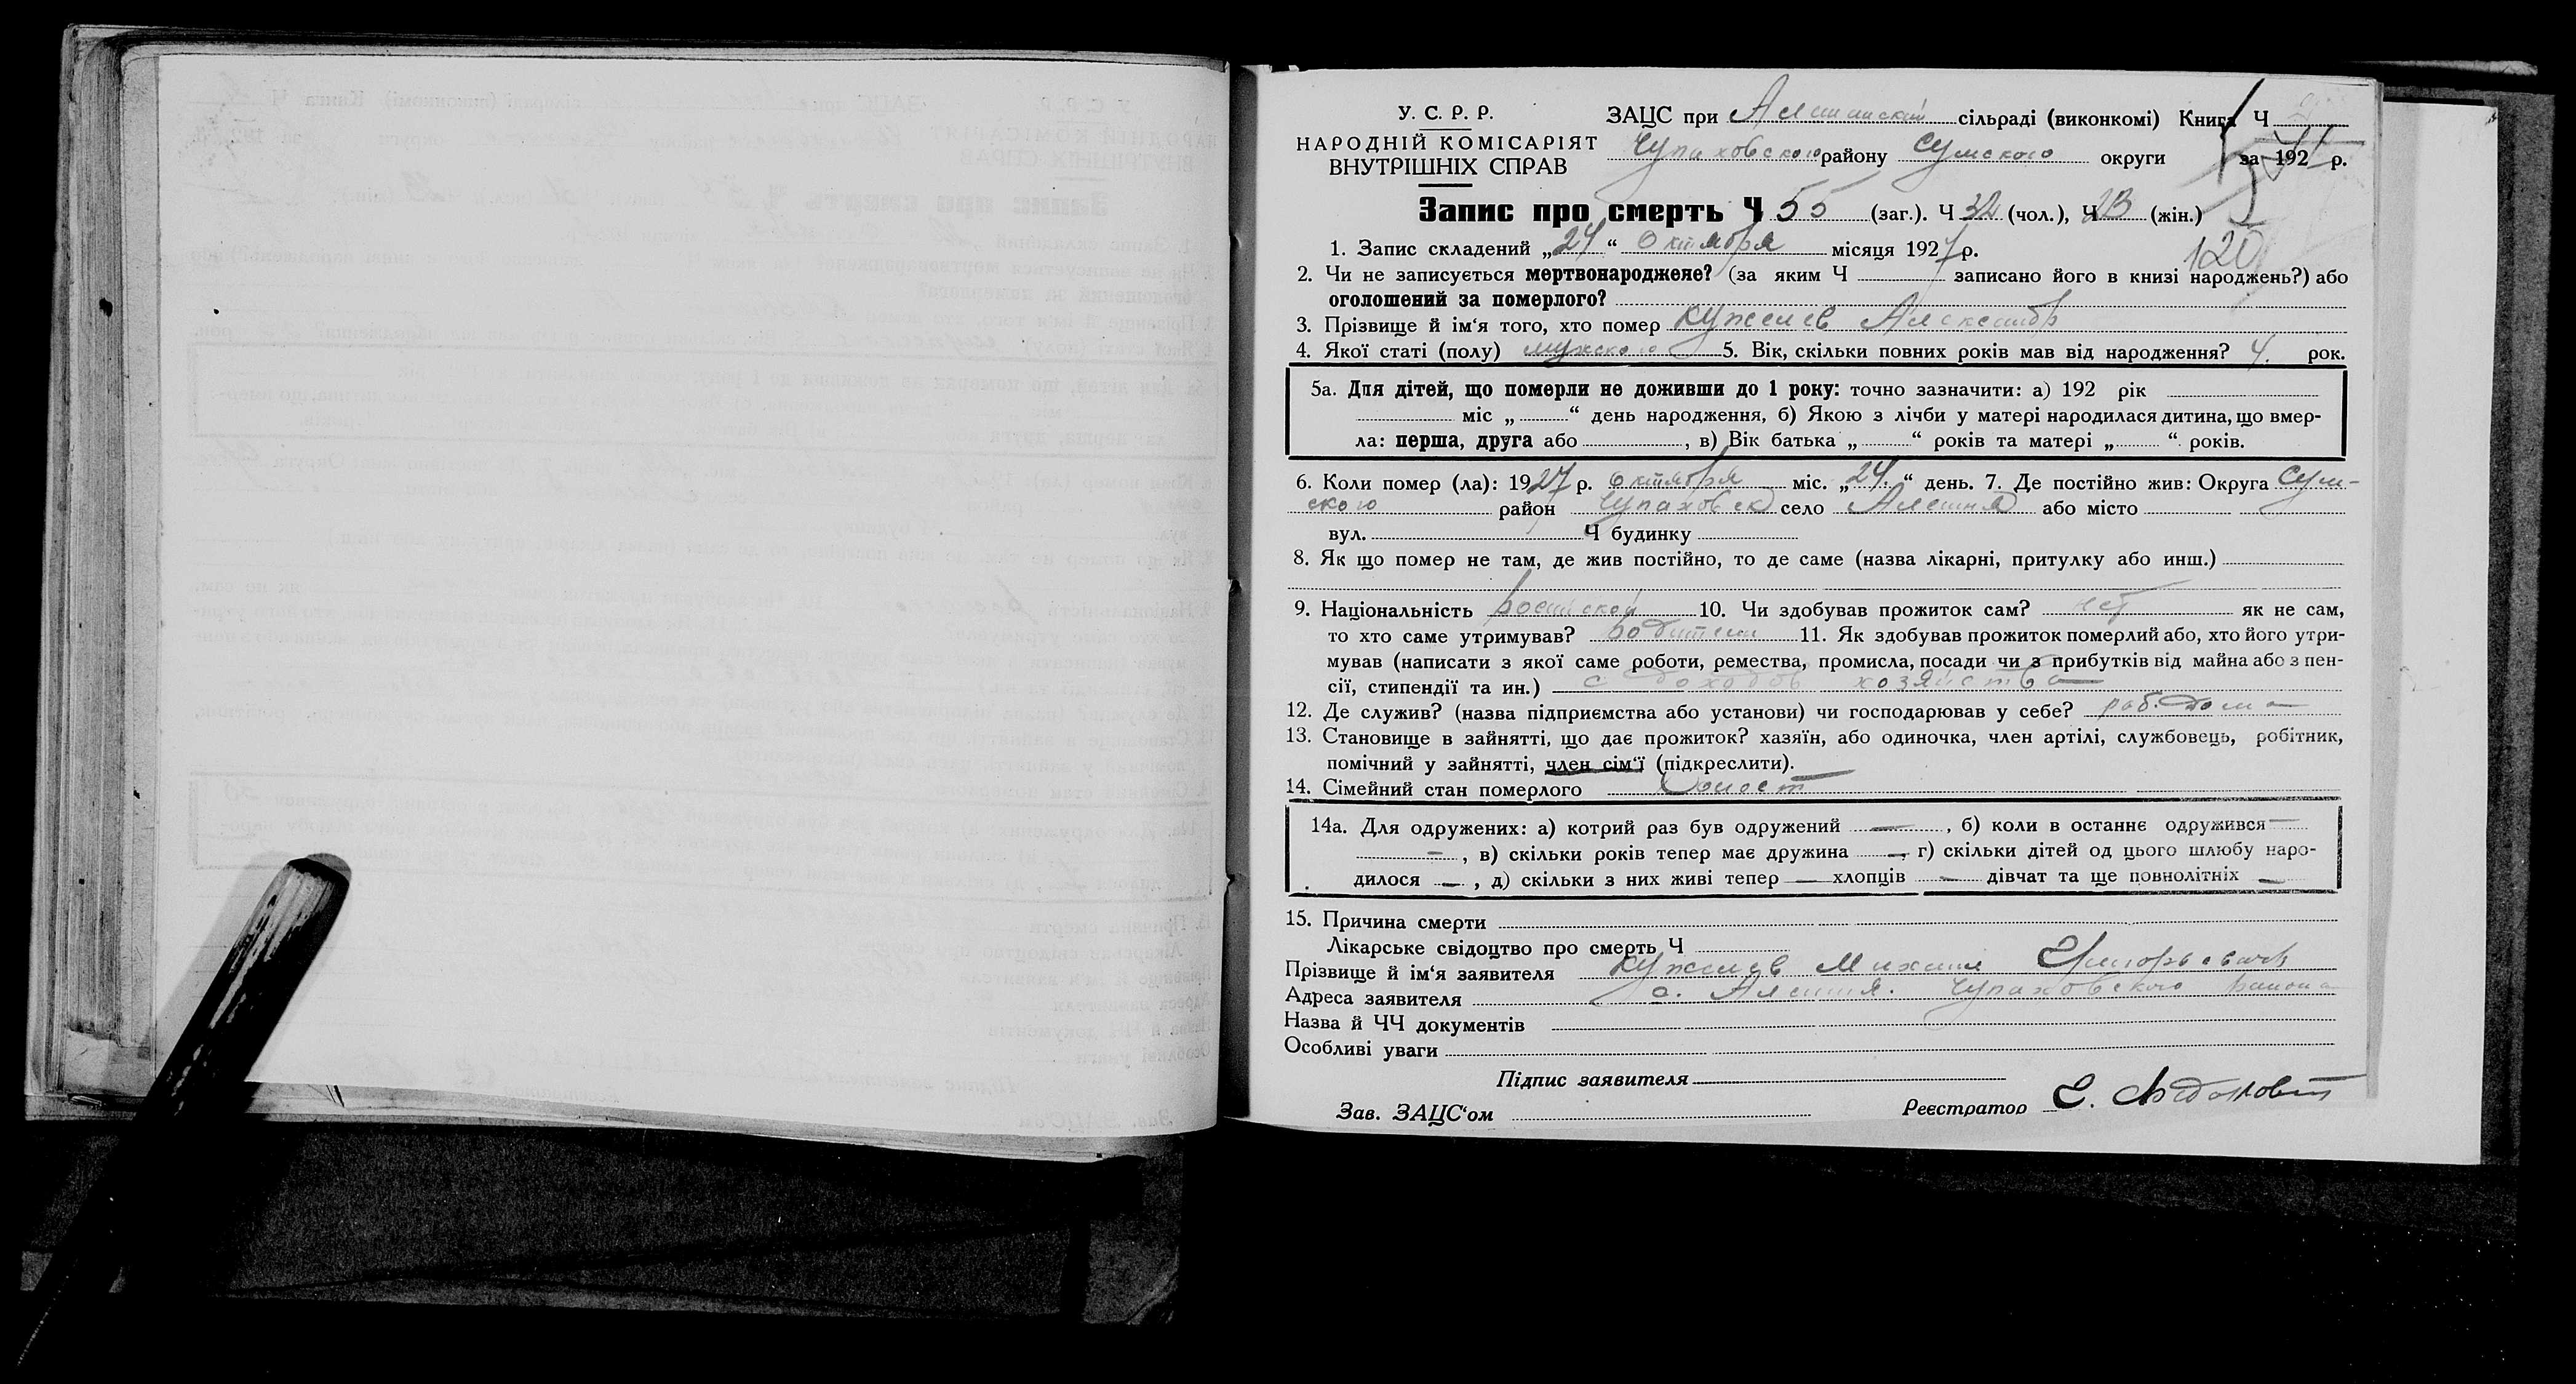 У. С. Р. Р.
НАРОДНІЙ КОМІСАРІЯТ
ВНУТРІШНІХ СПРАВ
ЗАЦС при Алешанский сільраді (виконкомі) Книга Ч
Чупаховского району Сумского округи за 192 р.
Запис про смерть Ч 55 (заг.). Ч 32 (чол.), Ч 23 (жін.)
120
1. Запис складений „24“ Октября місяця 1927 р.
2. Чи не записується мертвонароджене? (за яким Ч записано його в книзі народжень?) або
оголошений за померлого?
3. Прізвище й ім‘я того, хто помер Кужелев Александр
4. Якої статі (полу) мужского 5. Вік, скільки повних років мав від народження? 4. рок.
5а. Для дітей, що померли не доживши до 1 року: точно зазначити: а) 192 рік
міс „ “ день народження, б) Якою з лічби у матері народилася дитина, що вмер-
ла: перша, друга або , в) Вік батька „ “ років та матері „ “ років.
6. Коли помер (ла): 1927 р. Октября міс. „24.“ день. 7. Де постійно жив: Округа Сум-
ского район Чупаховск село Алешня або місто
вул. Ч будинку
8. Як що помер не там, де жив постійно, то де саме (назва лікарні, притулку або инш.)
9. Національність 10. Чи здобував прожиток сам? нет як не сам,
то хто саме утримував? родители 11. Як здобував прожиток померлий або, хто його утри-
мував (написати з якої саме роботи, ремества, промисла, посади чи з прибутків від майна або з пен-
сії, стипендії та ин.) с доходов хозяйства
12. Де служив? (назва підприємства або установи) чи господарював у себе? раб. дома
13. Становище в зайнятті, що дає прожиток? хазяїн, або одиночка, член артілі, службовець, робітник,
помічний у зайнятті, член сім‘ї (підкреслити).
14. Сімейний стан померлого Холост
14а. Для одружених: а) котрий раз був одружений — , б) коли в останнє одружився —
— , в) скільки років тепер має дружина —, г) скільки дітей од цього шлюбу наро-
дилося — , д) скільки з них живі тепер — хлопців — дівчат та ще повнолітніх —
15. Причина смерти
Лікарське свідоцтво про смерть Ч
Прізвище й ім‘я заявителя Кужелев Михаил
Адреса заявителя с. Алешня. Чупаховского района
Назва й ЧЧ документів
Особливі уваги
Підпис заявителя
Зав. ЗАЦС‘ом Реєстратор